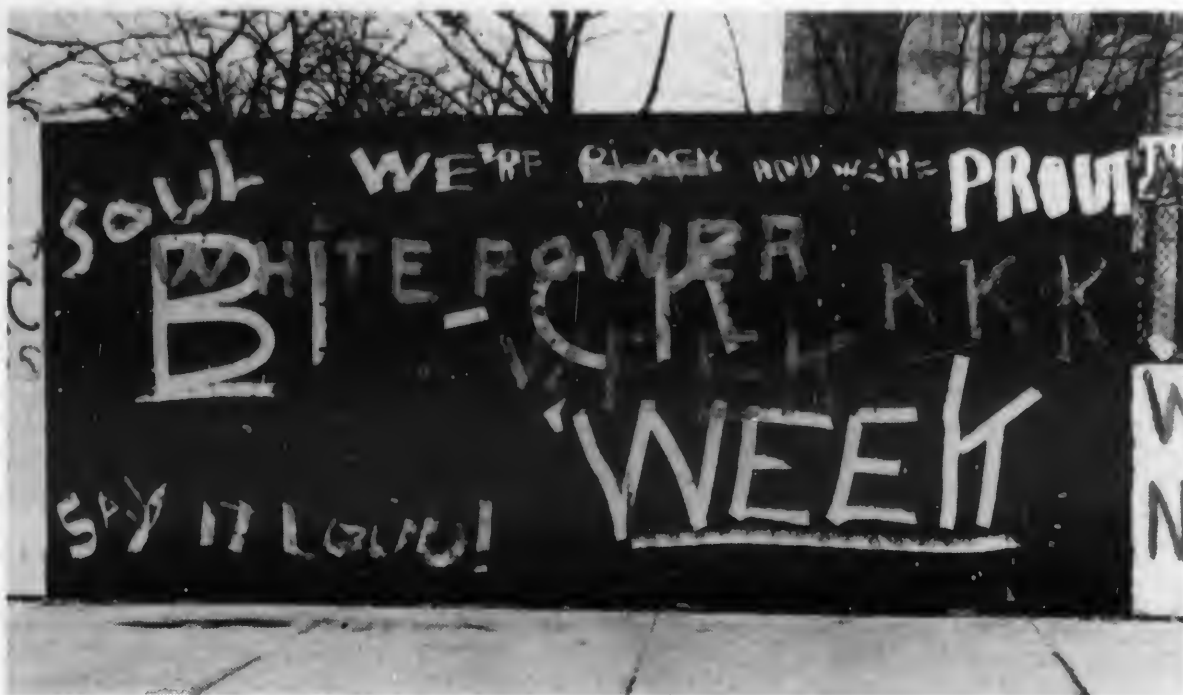 SOUL WE'RE BLACK AND WE'RE PROUD
WHITE POWER
BL-CK
K K K
WEEK
SAY IT LOUD!